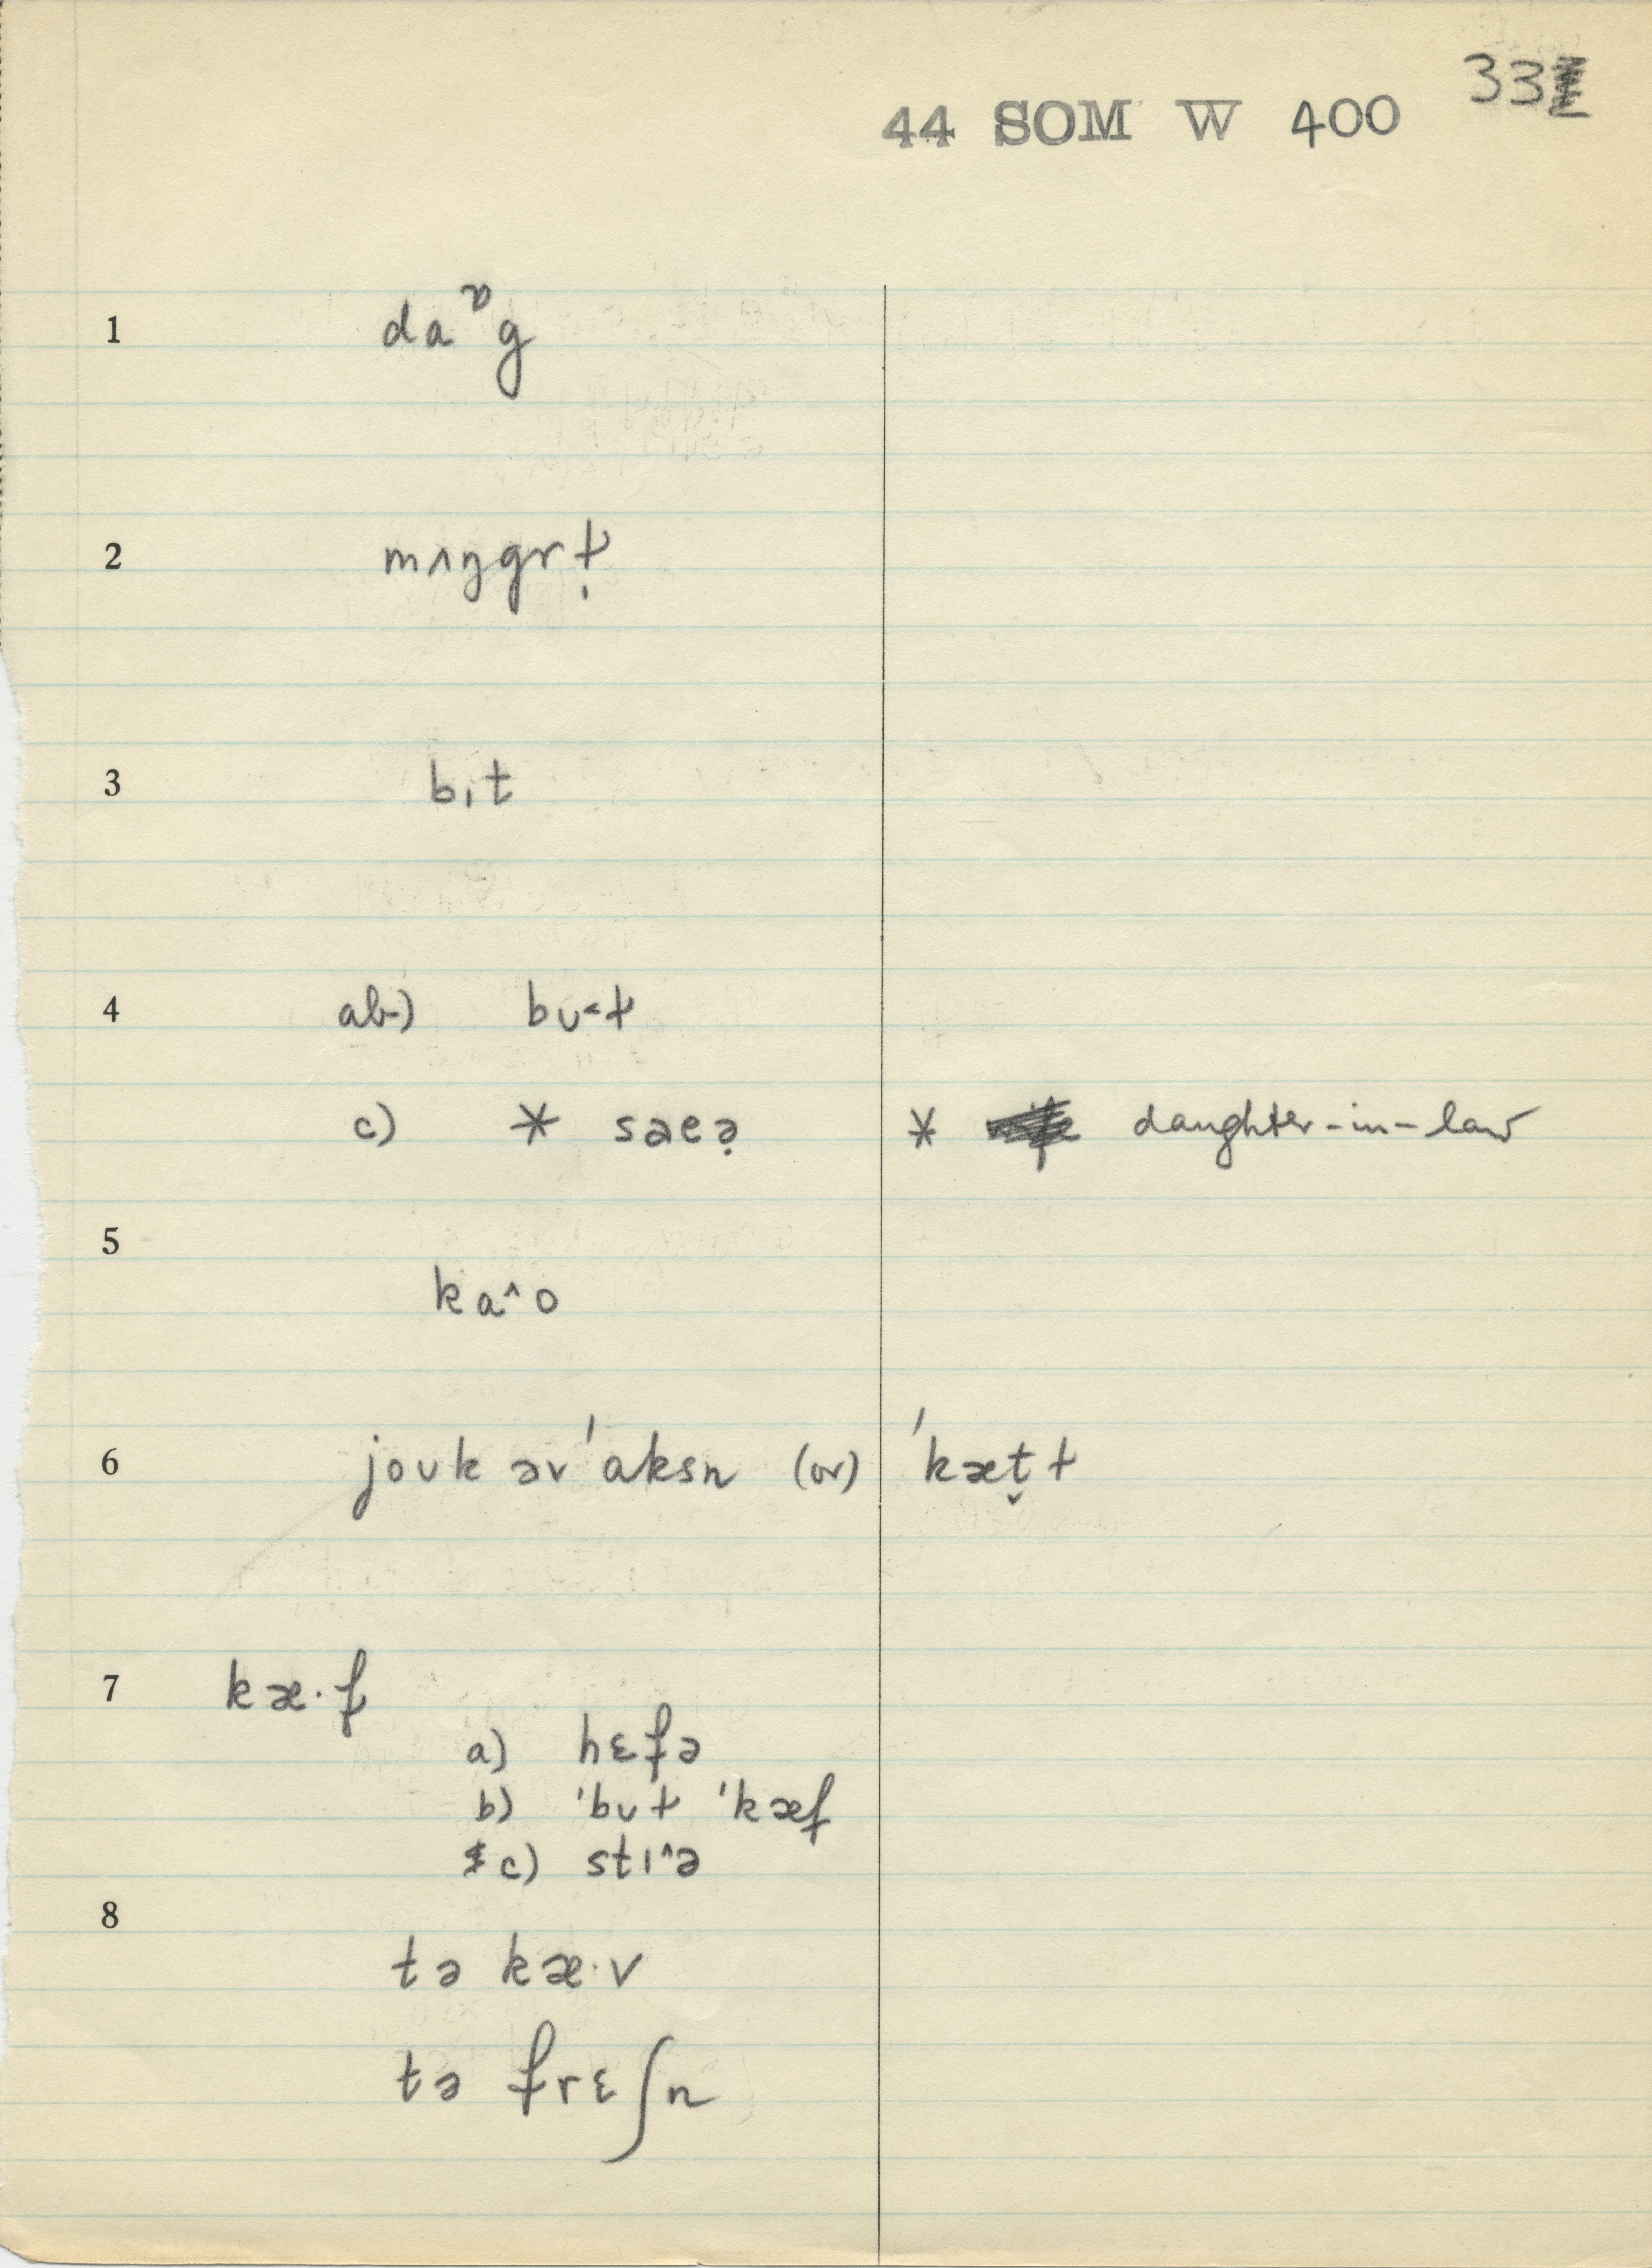 33
44 SOM W 400
1 daᶹg
2 mʌŋgrɫ̩
3 bɪt
4 ab) bʊ˂ɫ
c) * sæeə̣ * daughter-in-law
5 ka^o
6 joʊk əv ˈaksn (or) ˈkæt̬ɫ
7 kæ·f
a) hɛfə
b) ˈbʊɫ ˈkæf
c) stɪ^ə
8
tə kæ·v
tə frɛʃn